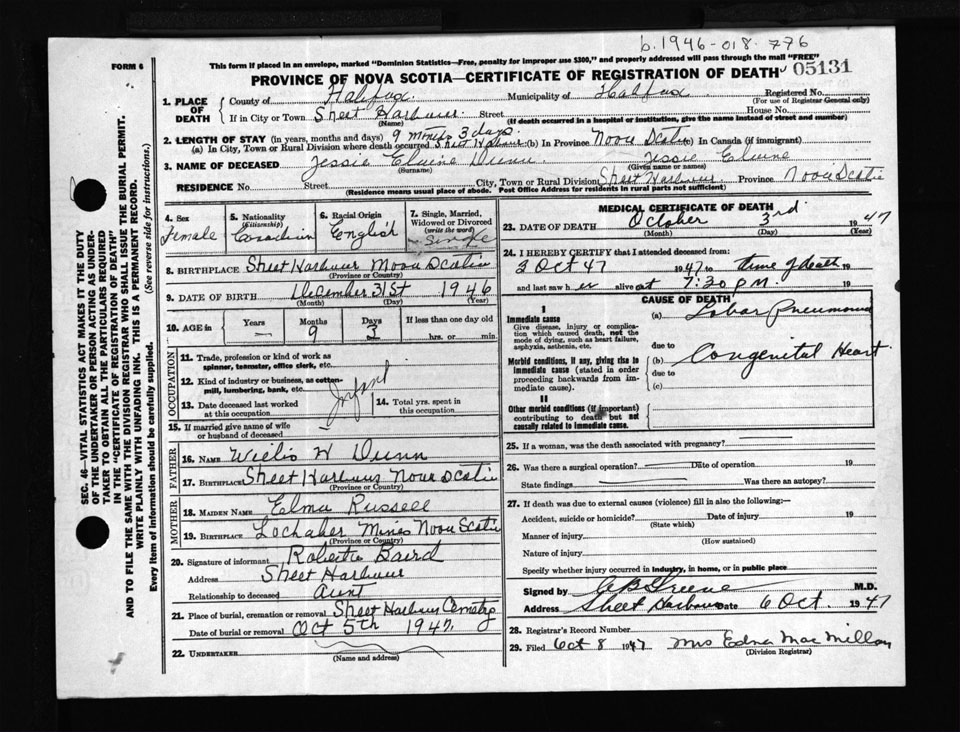 b. 1946-018-776
FORM 6
This form if placed in an envelope, marked "Dominion Statistics—Free, penalty for improper use $300," and properly addressed will pass through the mail "FREE"
PROVINCE OF NOVA SCOTIA—CERTIFICATE OF REGISTRATION OF DEATH
05131
1. PLACE OF DEATH
County of Halifax Municipality of Halifax Registered No.
(For use of Registrar General only)
If in City or Town Sheet Harbour Street House No.
(Name) (If death occurred in a hospital or institution, give the name instead of street and number)
2. LENGTH OF STAY (in years, months and days) 9 months 3 days.
(a) In City, Town or Rural Division where death occurred Sheet Harbour (b) In Province Nova Scotia (c) In Canada (if immigrant)
3. NAME OF DECEASED Jessie Elaine Dunn Jessie Elaine
(Surname) (Given name or names)
RESIDENCE No. Street City, Town or Rural Division Sheet Harbour Province Nova Scotia
(Residence means usual place of abode. Post Office Address for residents in rural parts not sufficient)
4. Sex
Female
5. Nationality
(Citizenship)
Canadian
6. Racial Origin
English
7. Single, Married, Widowed or Divorced
(write the word)
Single
8. BIRTHPLACE Sheet Harbour Nova Scotia
(Province or Country)
9. DATE OF BIRTH December 31st 1946
(Month) (Day) (Year)
10. AGE in
Years Months Days If less than one day old
— 9 3 hrs. or min.
OCCUPATION
11. Trade, profession or kind of work as spinner, teamster, office clerk, etc.
12. Kind of industry or business, as cotton-mill, lumbering, bank, etc.
Infant
13. Date deceased last worked at this occupation
14. Total yrs. spent in this occupation
15. If married give name of wife or husband of deceased
FATHER
16. NAME Willis W Dunn
17. BIRTHPLACE Sheet Harbour Nova Scotia
(Province or Country)
MOTHER
18. MAIDEN NAME Elma Russell
19. BIRTHPLACE Lochaber Mines Nova Scotia
(Province or Country)
20. Signature of informant Roberta Baird
Address Sheet Harbour
Relationship to deceased Aunt
21. Place of burial, cremation or removal Sheet Harbour Cemetry
Date of burial or removal Oct 5th 1947
22. UNDERTAKER
(Name and address)
MEDICAL CERTIFICATE OF DEATH
23. DATE OF DEATH October 3rd 1947
(Month) (Day) (Year)
24. I HEREBY CERTIFY that I attended deceased from:
3 Oct 47 1947 to time of death 19
and last saw her alive at 7:30 P.M. 19
CAUSE OF DEATH
I
Immediate cause
Give disease, injury or complication which caused death, not the mode of dying, such as heart failure, asphyxia, asthenia, etc.
(a) Lobar Pneumonia
due to
Morbid conditions, if any, giving rise to immediate cause (stated in order proceeding backwards from immediate cause).
(b) Congenital Heart
due to
(c)
II
Other morbid conditions (if important) contributing to death but not causally related to immediate cause.
25. If a woman, was the death associated with pregnancy?
26. Was there a surgical operation? Date of operation 19
State findings Was there an autopsy?
27. If death was due to external causes (violence) fill in also the following:—
Accident, suicide or homicide? Date of injury 19
(State which)
Manner of injury
(How sustained)
Nature of injury
Specify whether injury occurred in industry, in home, or in public place
Signed by A B Greene M.D.
Address Sheet Harbour Date 6 Oct. 1947
28. Registrar's Record Number
29. Filed Oct 8 1947 Mrs Edna MacMillan
(Division Registrar)
SEC. 46—VITAL STATISTICS ACT MAKES IT THE DUTY
OF THE UNDERTAKER OR PERSON ACTING AS UNDER-
TAKER TO OBTAIN ALL THE PARTICULARS REQUIRED
IN THE "CERTIFICATE OF REGISTRATION OF DEATH"
AND TO FILE THE SAME WITH THE DIVISION REGISTRAR WHO SHALL ISSUE THE BURIAL PERMIT.
WRITE PLAINLY WITH UNFADING INK. THIS IS A PERMANENT RECORD.
Every item of information should be carefully supplied. (See reverse side for instructions.)